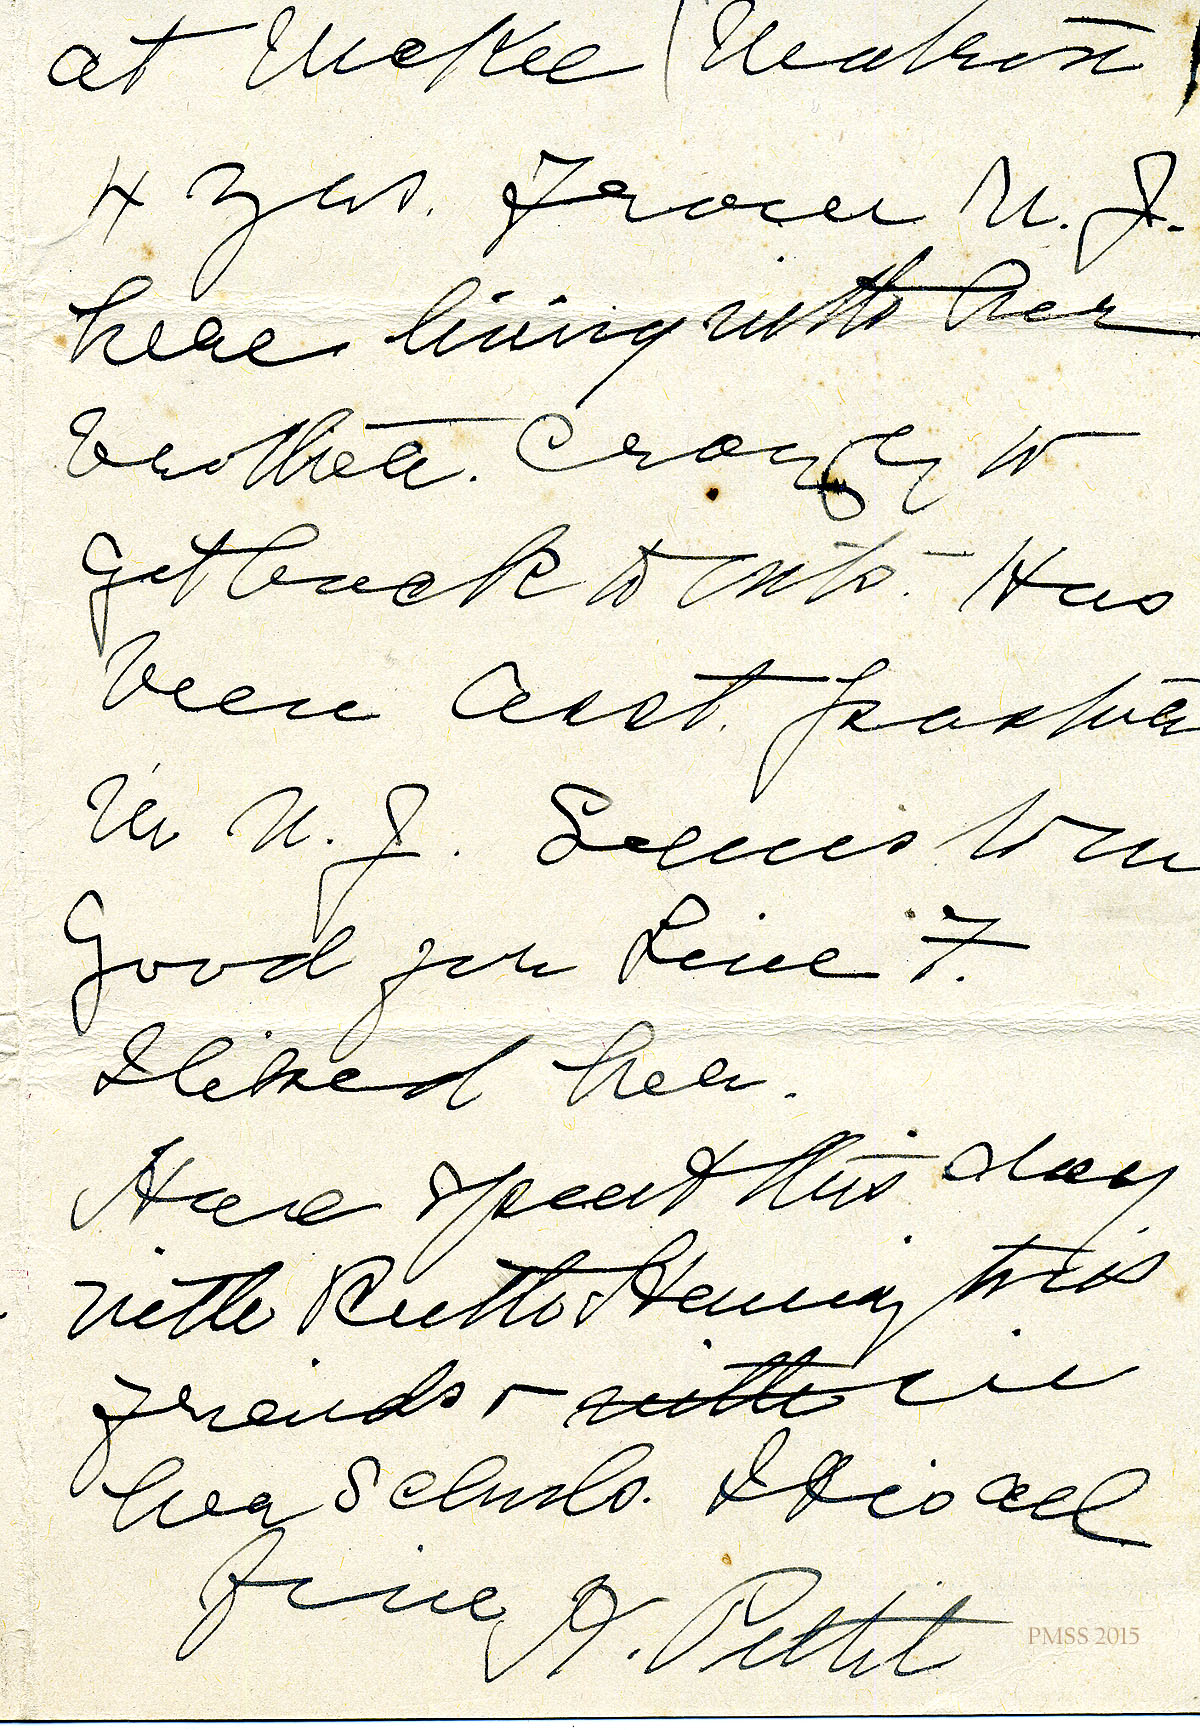 at McKee (Matron)
4 yrs. From N. J.
here living with her
brother. Crazy to
get back to mts. Has
been asst. pastor
in N. J. Seems to me
Good for Line F.
I liked her.
Have spent this day
with Ruth Henning & its
friends + with in
her Schools. It is all
fine K. Pettit
PMSS 2015